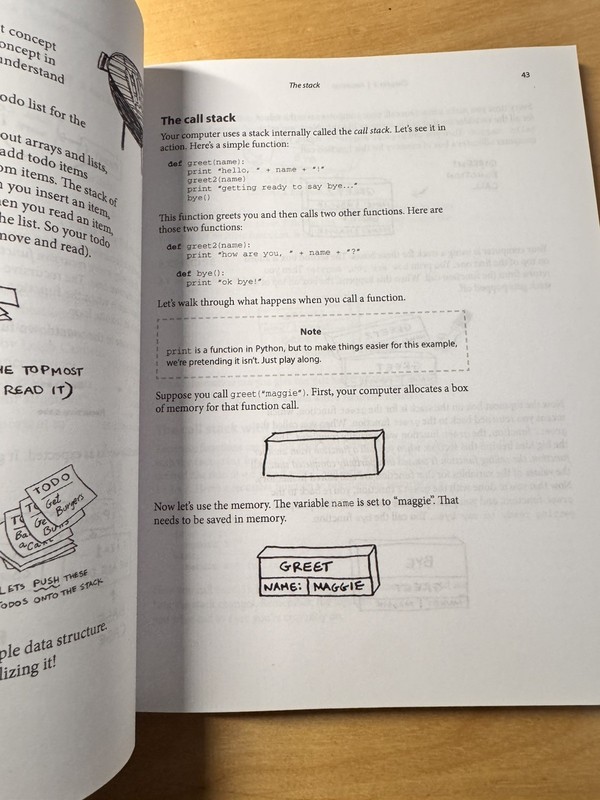 t concept
oncept in
understand
odo list for the
out arrays and lists,
add todo items
om items. The stack of
you insert an item,
en you read an item,
he list. So your todo
move and read).
HE TOPMOST
READ IT)
TODO
Get
Burgers
LETS PUSH THESE
TODOS ONTO THE STACK
ple data structure.
lizing it!
The stack
43
The call stack
Your computer uses a stack internally called the call stack. Let's see it in
action. Here's a simple function:
def greet(name):
print "hello, " + name + "!"
greet2(name)
print "getting ready to say bye..."
bye()
This function greets you and then calls two other functions. Here are
those two functions:
def greet2(name):
print "how are you, " + name + "?"
def bye():
print "ok bye!"
Let's walk through what happens when you call a function.
Note
print is a function in Python, but to make things easier for this example,
we're pretending it isn't. Just play along.
Suppose you call greet("maggie"). First, your computer allocates a box
of memory for that function call.
Now let's use the memory. The variable name is set to "maggie". That
needs to be saved in memory.
GREET
NAME: MAGGIE